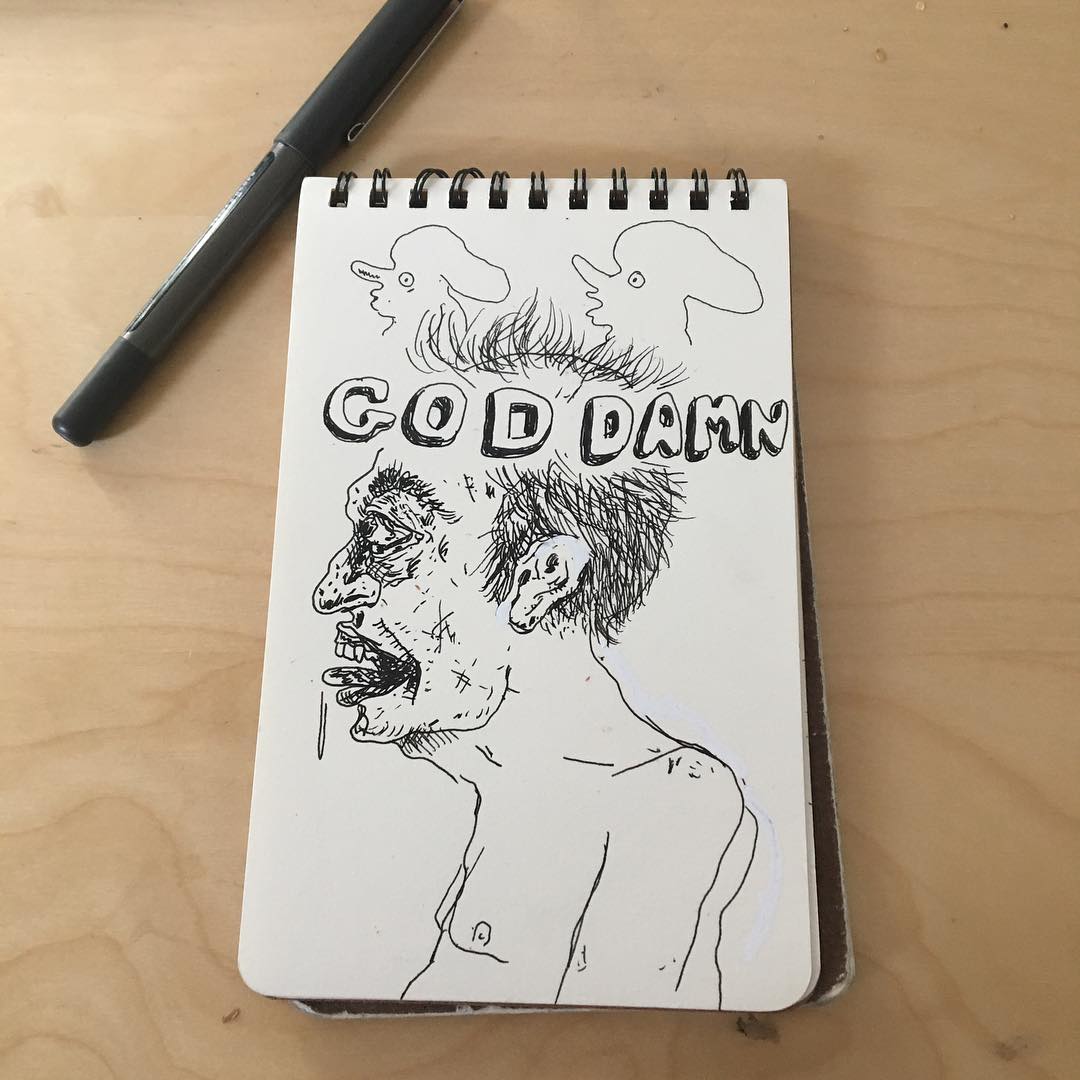 GOD DAMN